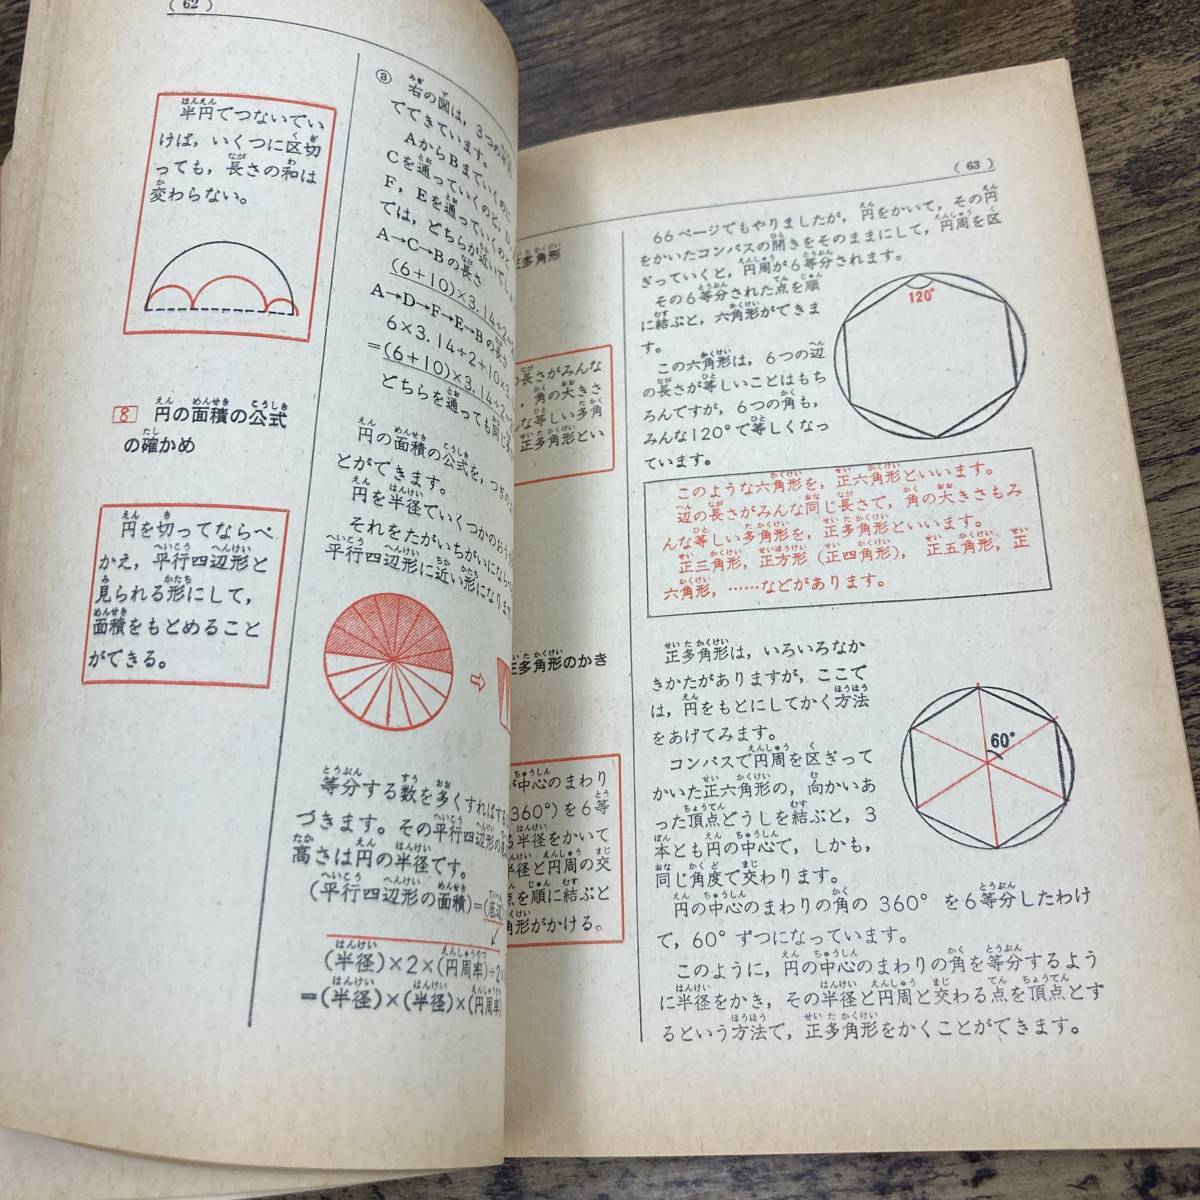 (62)
半円でつないでい
けば，いくつに区切
っても，長さの和は
変わらない。
8 円の面積の公式
の確かめ
円を切ってならべ
かえ，平行四辺形と
見られる形にして，
面積をもとめること
ができる。
③ 右の図は，3つの
てできています。
AからBまでいくのに
Cを通っていくのと，D，
F，Eを通っていくのと
では，どちらが近いでしょ
A→C→Bの長さ
(6+10)×3.14÷2
A→D→F→E→Bの長さ
6×3.14÷2+10×3.
=(6+10)×3.14÷2
どちらを通っても同じ
円の面積の公式を，つぎの
とができます。
円を半径でいくつかのおう
それをたがいちがいにならべ
平行四辺形に近い形になります
等分する数を多くすればする
づきます。その平行四辺形の
高さは円の半径です。
(平行四辺形の面積)=(底辺)
(半径)×2×(円周率)÷2
=(半径)×(半径)×(円周率)
(63)
正多角形
の長さがみんな
，角の大きさ
な等しい多角
正多角形とい
正多角形のかき
中心のまわり
360°)を6等
半径をかいて
半径と円周の交
点を順に結ぶと
角形がかける。
66ページでもやりましたが，円をかいて，その円
をかいたコンパスの開きをそのままにして，円周を区
ぎっていくと，円周が6等分されます。
その6等分された点を順
に結ぶと，六角形ができま
す。
この六角形は，6つの辺
の長さが等しいことはもち
ろんですが，6つの角も，
みんな120°で等しくなっ
ています。
120°
このような六角形を，正六角形といいます。
辺の長さがみんな同じ長さで，角の大きさもみ
んな等しい多角形を，正多角形といいます。
正三角形，正方形(正四角形)，正五角形，正
六角形，……などがあります。
正多角形は，いろいろなか
きかたがありますが，ここで
は，円をもとにしてかく方法
をあげてみます。
コンパスで円周を区ぎって
かいた正六角形の，向かいあ
った頂点どうしを結ぶと，3
本とも円の中心で，しかも，
同じ角度で交わります。
60°
円の中心のまわりの角の360°を6等分したわけ
で，60°ずつになっています。
このように，円の中心のまわりの角を等分するよう
に半径をかき，その半径と円周と交わる点を頂点とす
るという方法で，正多角形をかくことができます。